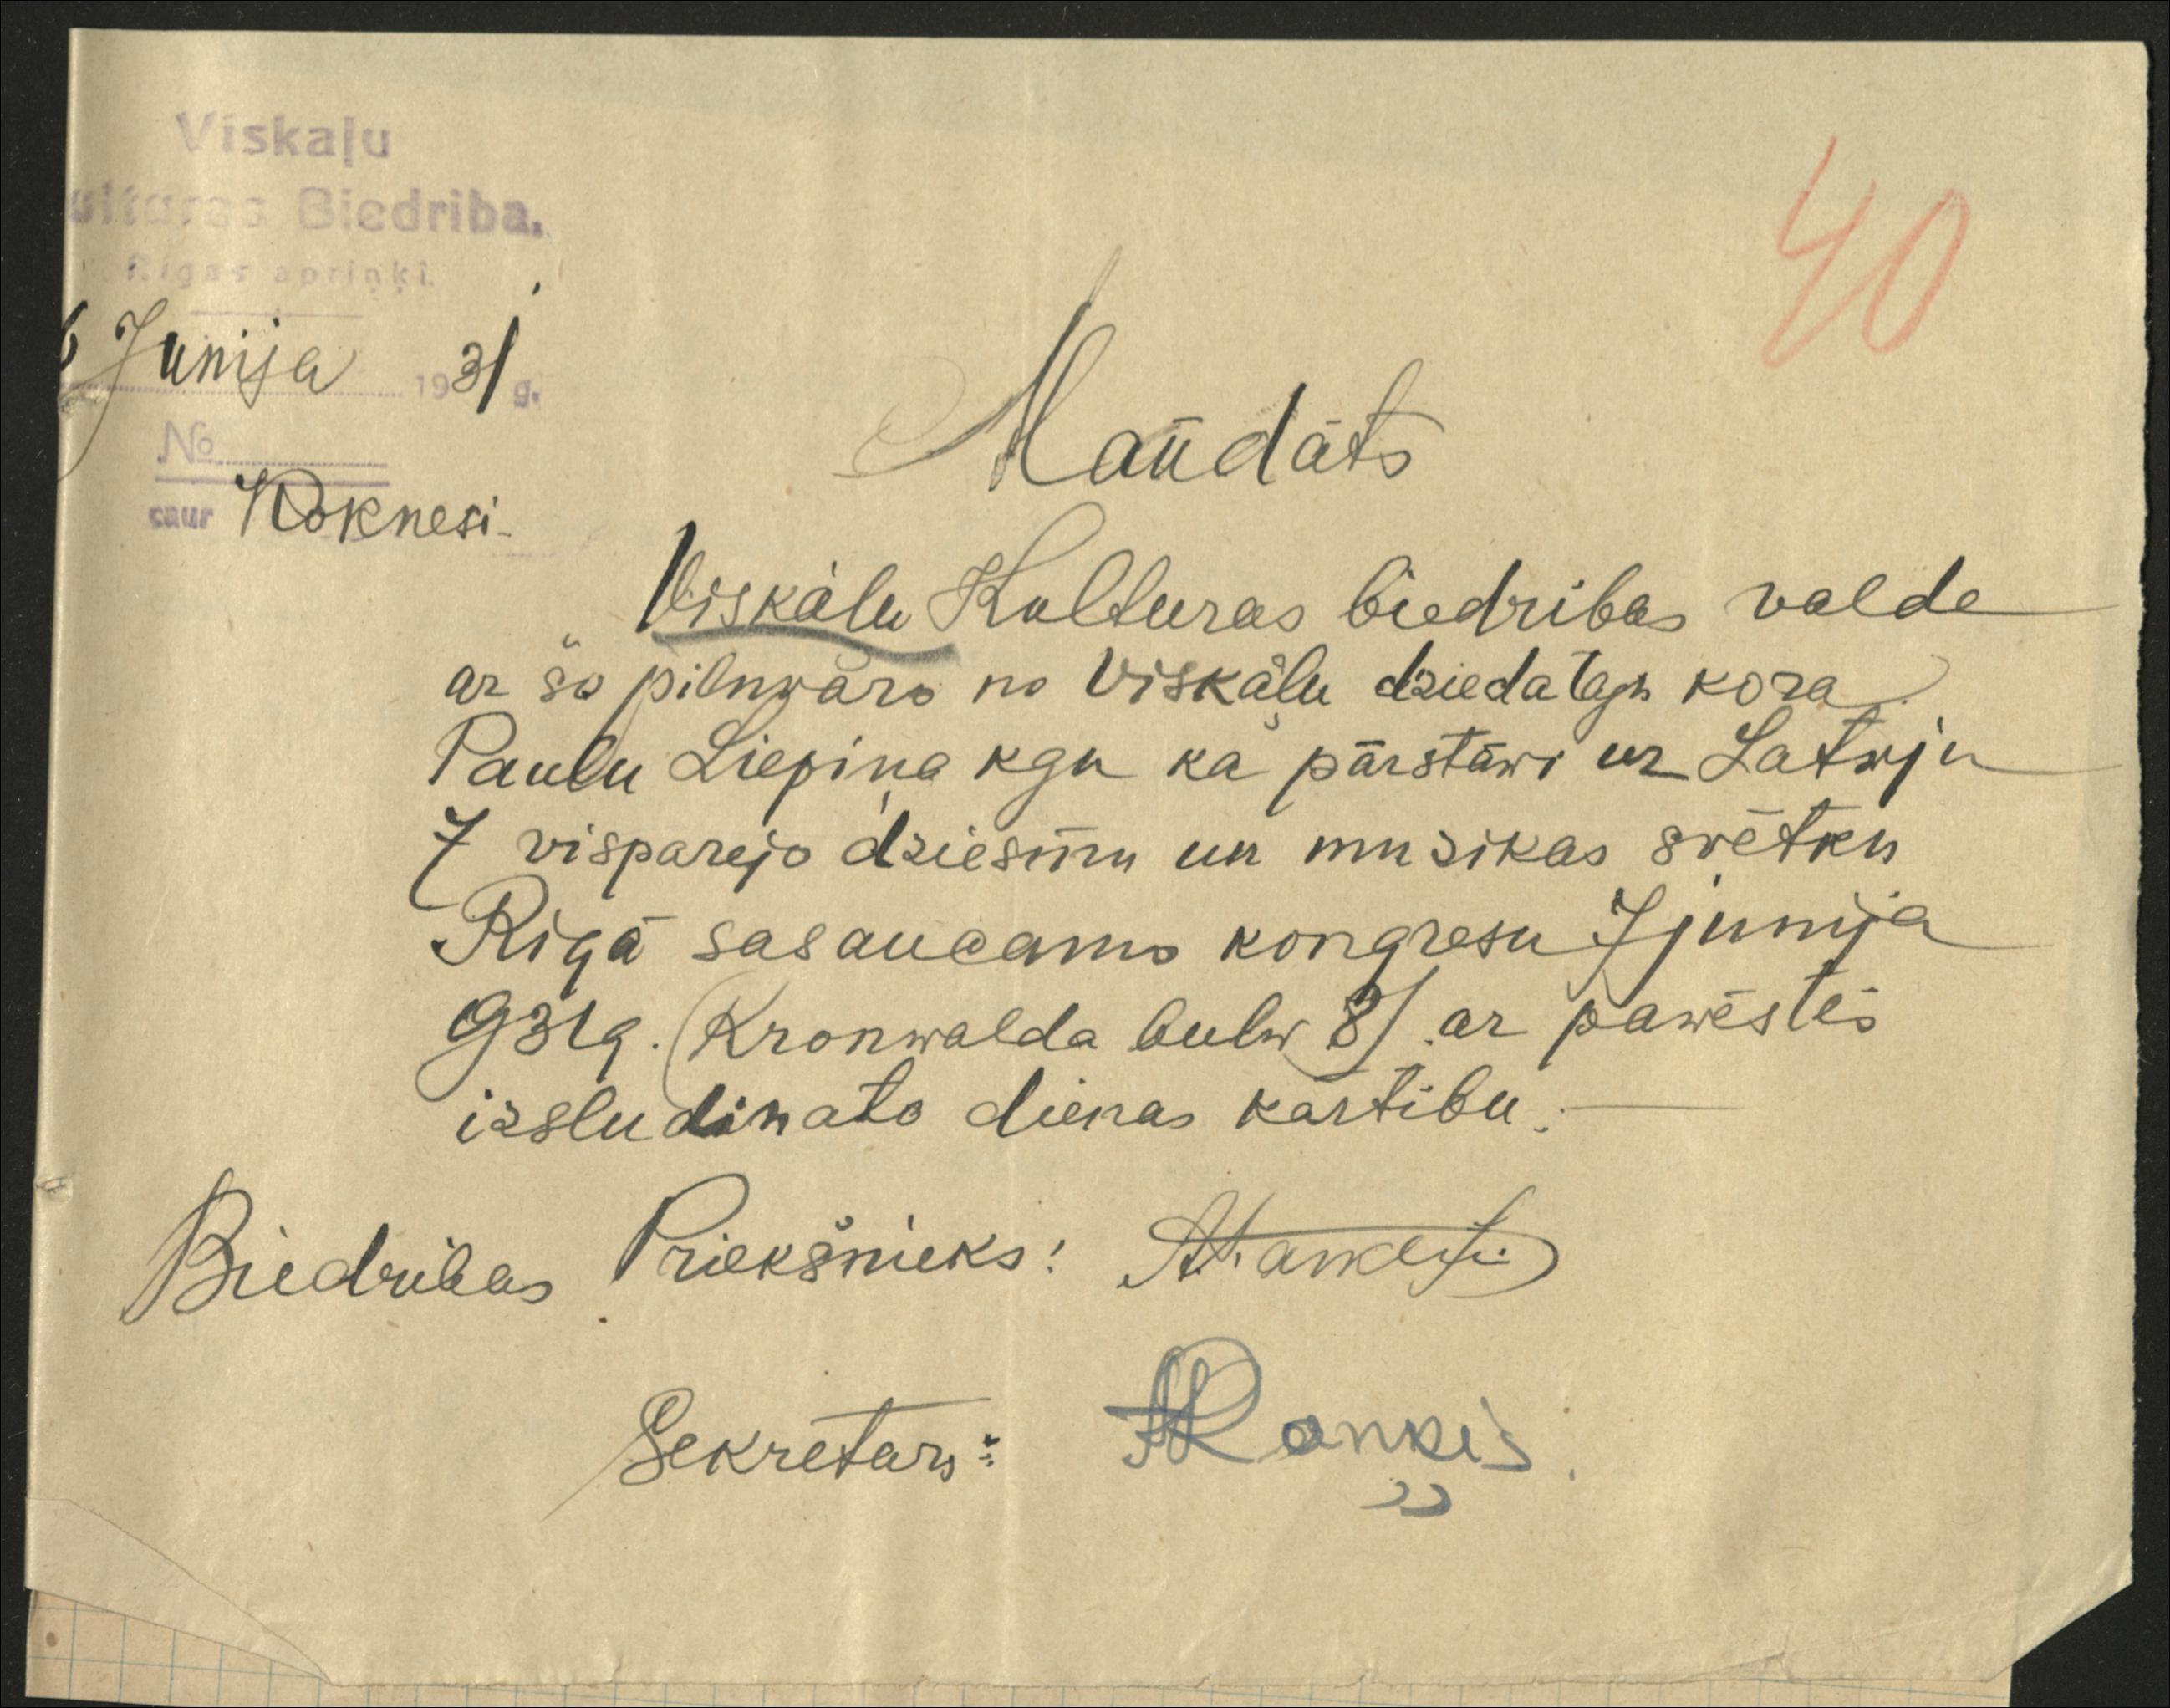 Viskaļu
ulturas Biedriba.
Rigas apriņķî.
40
6 Junija 1931 g.
No
caur Koknesi.
Mandāts
Viskaļu Kulturas biedribas valde
ar šo pilnwaro no Viskāļu dziedatāju kora
Paulu Liepiņa kgu kā pārstāwi uz Latwju
7 visparejo dziesmu un muzikas svētku
Rigā sasaucamo kongresu 7 junija
931g. (Kronwalda bulw 8/ ar pawēstēs
izsludinato dienas kārtibu. —
Biedribas Priekšnieks:
Sekretars: